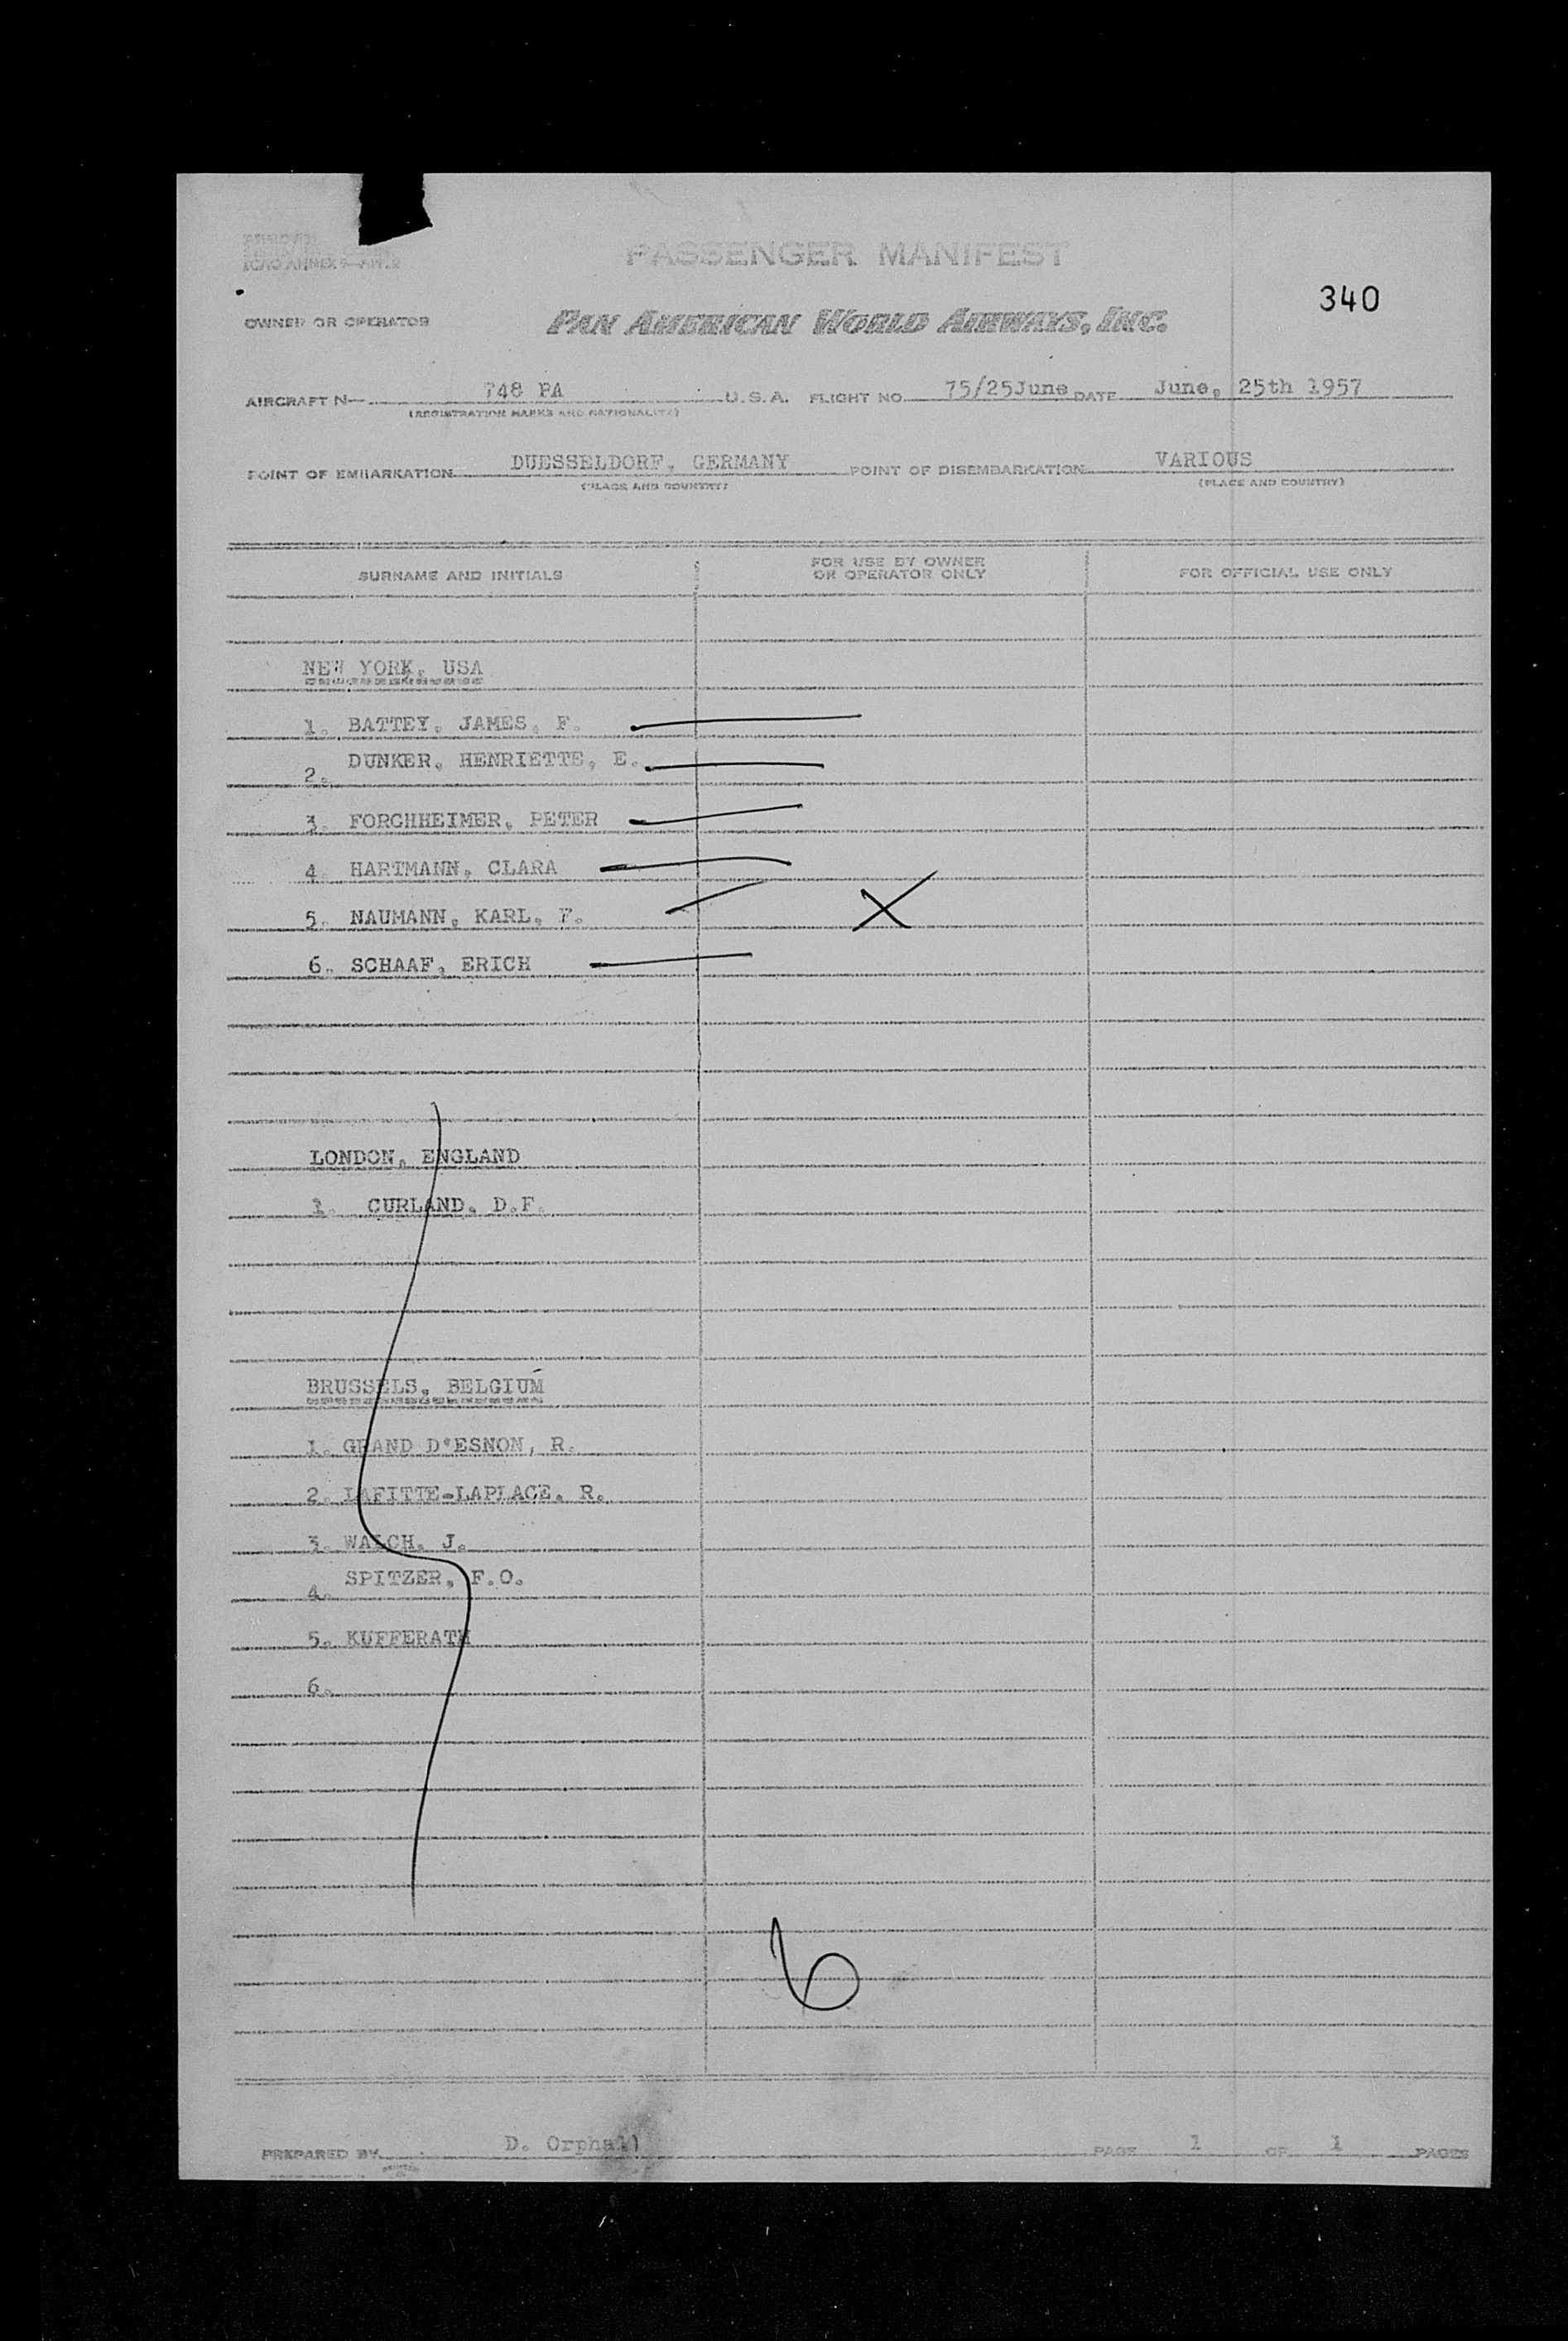 ICAO ANNEX 9—APP. 2
PASSENGER MANIFEST
340
OWNER OR OPERATOR PAN AMERICAN WORLD AIRWAYS, INC.
AIRCRAFT N— 748 PA U.S.A. FLIGHT NO. 75/25June DATE June, 25th 1957
(REGISTRATION MARKS AND NATIONALITY)
POINT OF EMBARKATION DUESSELDORF, GERMANY POINT OF DISEMBARKATION VARIOUS
(PLACE AND COUNTRY) (PLACE AND COUNTRY)
SURNAME AND INITIALS FOR USE BY OWNER OR OPERATOR ONLY FOR OFFICIAL USE ONLY
NEW YORK, USA
1. BATTEY, JAMES, F.
2. DUNKER, HENRIETTE, E.
3. FORCHHEIMER, PETER
4. HARTMANN, CLARA
5. NAUMANN, KARL, F. X
6. SCHAAF, ERICH
LONDON, ENGLAND
1. CURLAND, D.F.
BRUSSELS, BELGIUM
1. GRAND D'ESNON, R.
2. LAFITTE-LAPLACE, R.
3. WALCH, J.
4. SPITZER, F.O.
5. KUFFERATH
6.
6
PREPARED BY D. Orphall PAGE 1 OF 1 PAGES